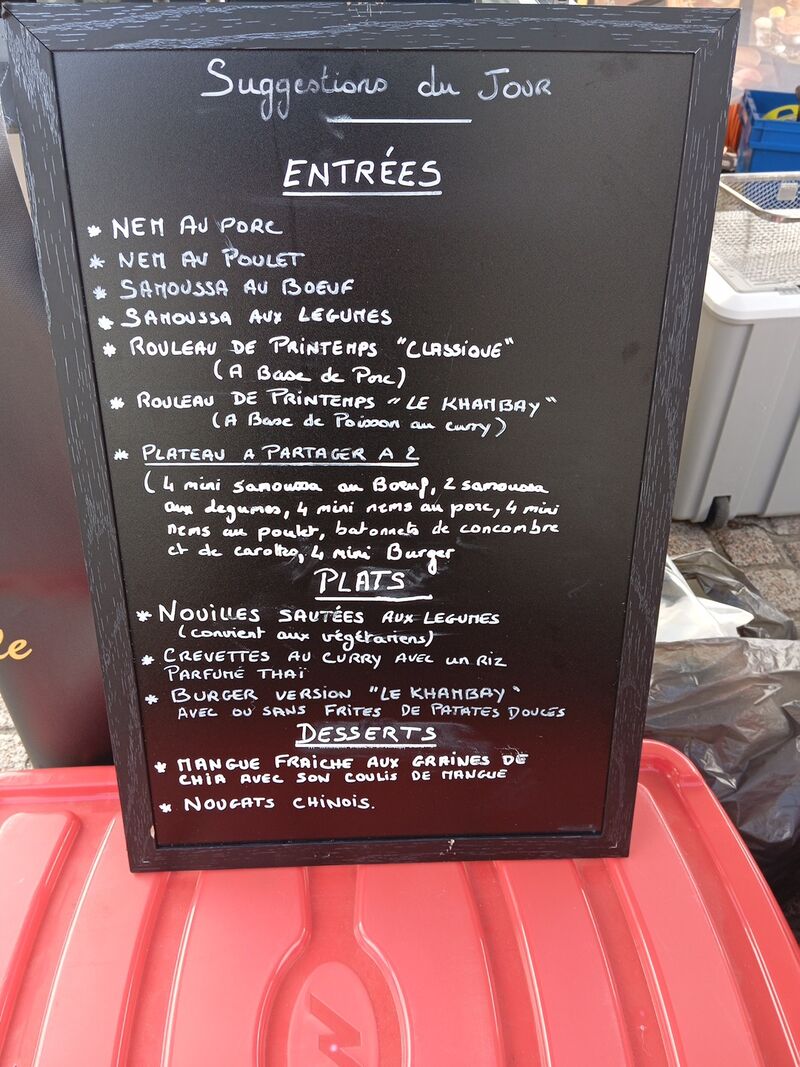 Suggestions du JOUR
ENTRÉES
* NEM AU PORC
* NEM AU POULET
* SAMOUSSA AU BOEUF
* SAMOUSSA AUX LEGUMES
* ROULEAU DE PRINTEMPS "CLASSIQUE"
(A Base de Porc)
* ROULEAU DE PRINTEMPS "LE KHAMBAY"
(A Base de Poisson au curry)
* PLATEAU A PARTAGER A 2
(4 mini samoussa au Boeuf, 2 samoussa
aux legumes, 4 mini nems au porc, 4 mini
nems au poulet, batonnets de concombre
et de carottes, 4 mini Burger
PLATS
* NOUILLES SAUTÉES AUX LEGUMES
(convient aux végétariens)
* CREVETTES AU CURRY AVEC un RIZ
PARFUMÉ THAÏ
* BURGER VERSION "LE KHAMBAY"
AVEC OU SANS FRITES DE PATATES DOUCES
DESSERTS
* MANGUE FRAICHE AUX GRAINES DE
CHIA AVEC SON COULIS DE MANGUE
* NOUGATS CHINOIS.